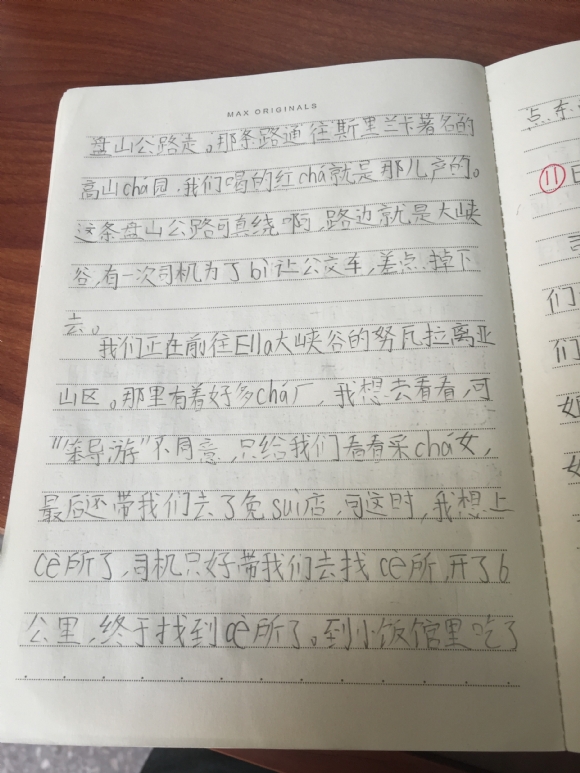 MAX ORIGINALS
盘山公路走。那条路通往斯里兰卡著名的
高山chá园，我们喝的红chá就是那儿产的。
这条盘山公路可真绕啊，路边就是大峡
谷，有一次司机为了bì让公交车，差点掉下
去。
我们正在前往Ella大峡谷的努瓦拉离亚
山区。那里有着好多chá厂，我想去看看，可
“笨导游”不同意，只给我们看看采chá女，
最后还带我们去了免suì店，可这时，我想上
cè所了，司机只好带我们去找cè所，开了6
公里，终于找到cè所了。到小饭馆里吃了
点东
11
们
们